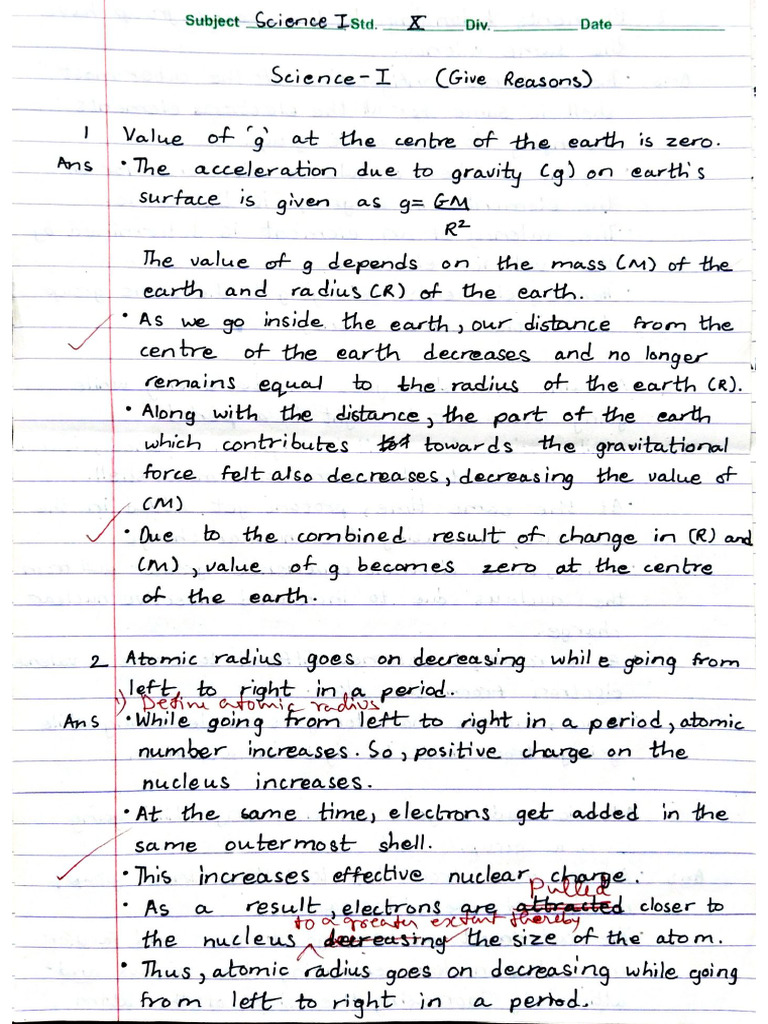 Subject Science I Std. X Div. Date
Science-I (Give Reasons)
1 Value of 'g' at the centre of the earth is zero.
Ans • The acceleration due to gravity (g) on earth's
surface is given as g= GM
R²
The value of g depends on the mass (M) of the
earth and radius (R) of the earth.
• As we go inside the earth, our distance from the
centre of the earth decreases and no longer
remains equal to the radius of the earth (R).
• Along with the distance, the part of the earth
which contributes towards the gravitational
force felt also decreases, decreasing the value of
(M)
• Due to the combined result of change in (R) and
(M), value of g becomes zero at the centre
of the earth.
2 Atomic radius goes on decreasing while going from
left, to right in a period.
1) Define atomic radius
Ans • While going from left to right in a period, atomic
number increases. So, positive charge on the
nucleus increases.
• At the same time, electrons get added in the
same outermost shell.
• This increases effective nuclear charge.
Pulled
• As a result, electrons are attracted closer to
to a greater extent thereby
the nucleus decreasing the size of the atom.
• Thus, atomic radius goes on decreasing while going
from left to right in a period.